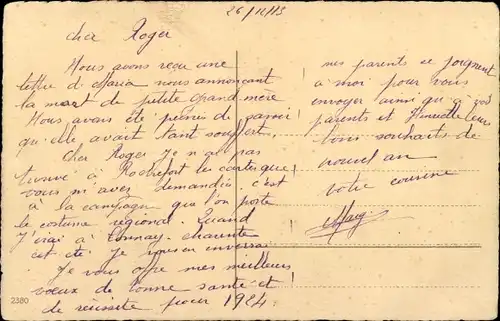 26/12/13
cher Roger
Nous avons reçu une
lettre de Maria nous annonçant
la mort de petite grand mère
Nous avons été peinés de savoir
qu'elle avait tant souffert.
Cher Roger Je n'ai pas
trouvé à Rochefort les cartes que
vous m'avez demandées c'est
à la campagne que l'on porte
le costume régional. Quand
J'irai à Tonnay charente
cet été Je vous en enverrai
Je vous offre mes meilleurs
vœux de bonne santé et
de réussite pour 1924
mes parents se joignent
à moi pour vous
envoyer ainsi qu'à vos
parents et leurs
bons souhaits de
nouvel an
votre cousine
2380